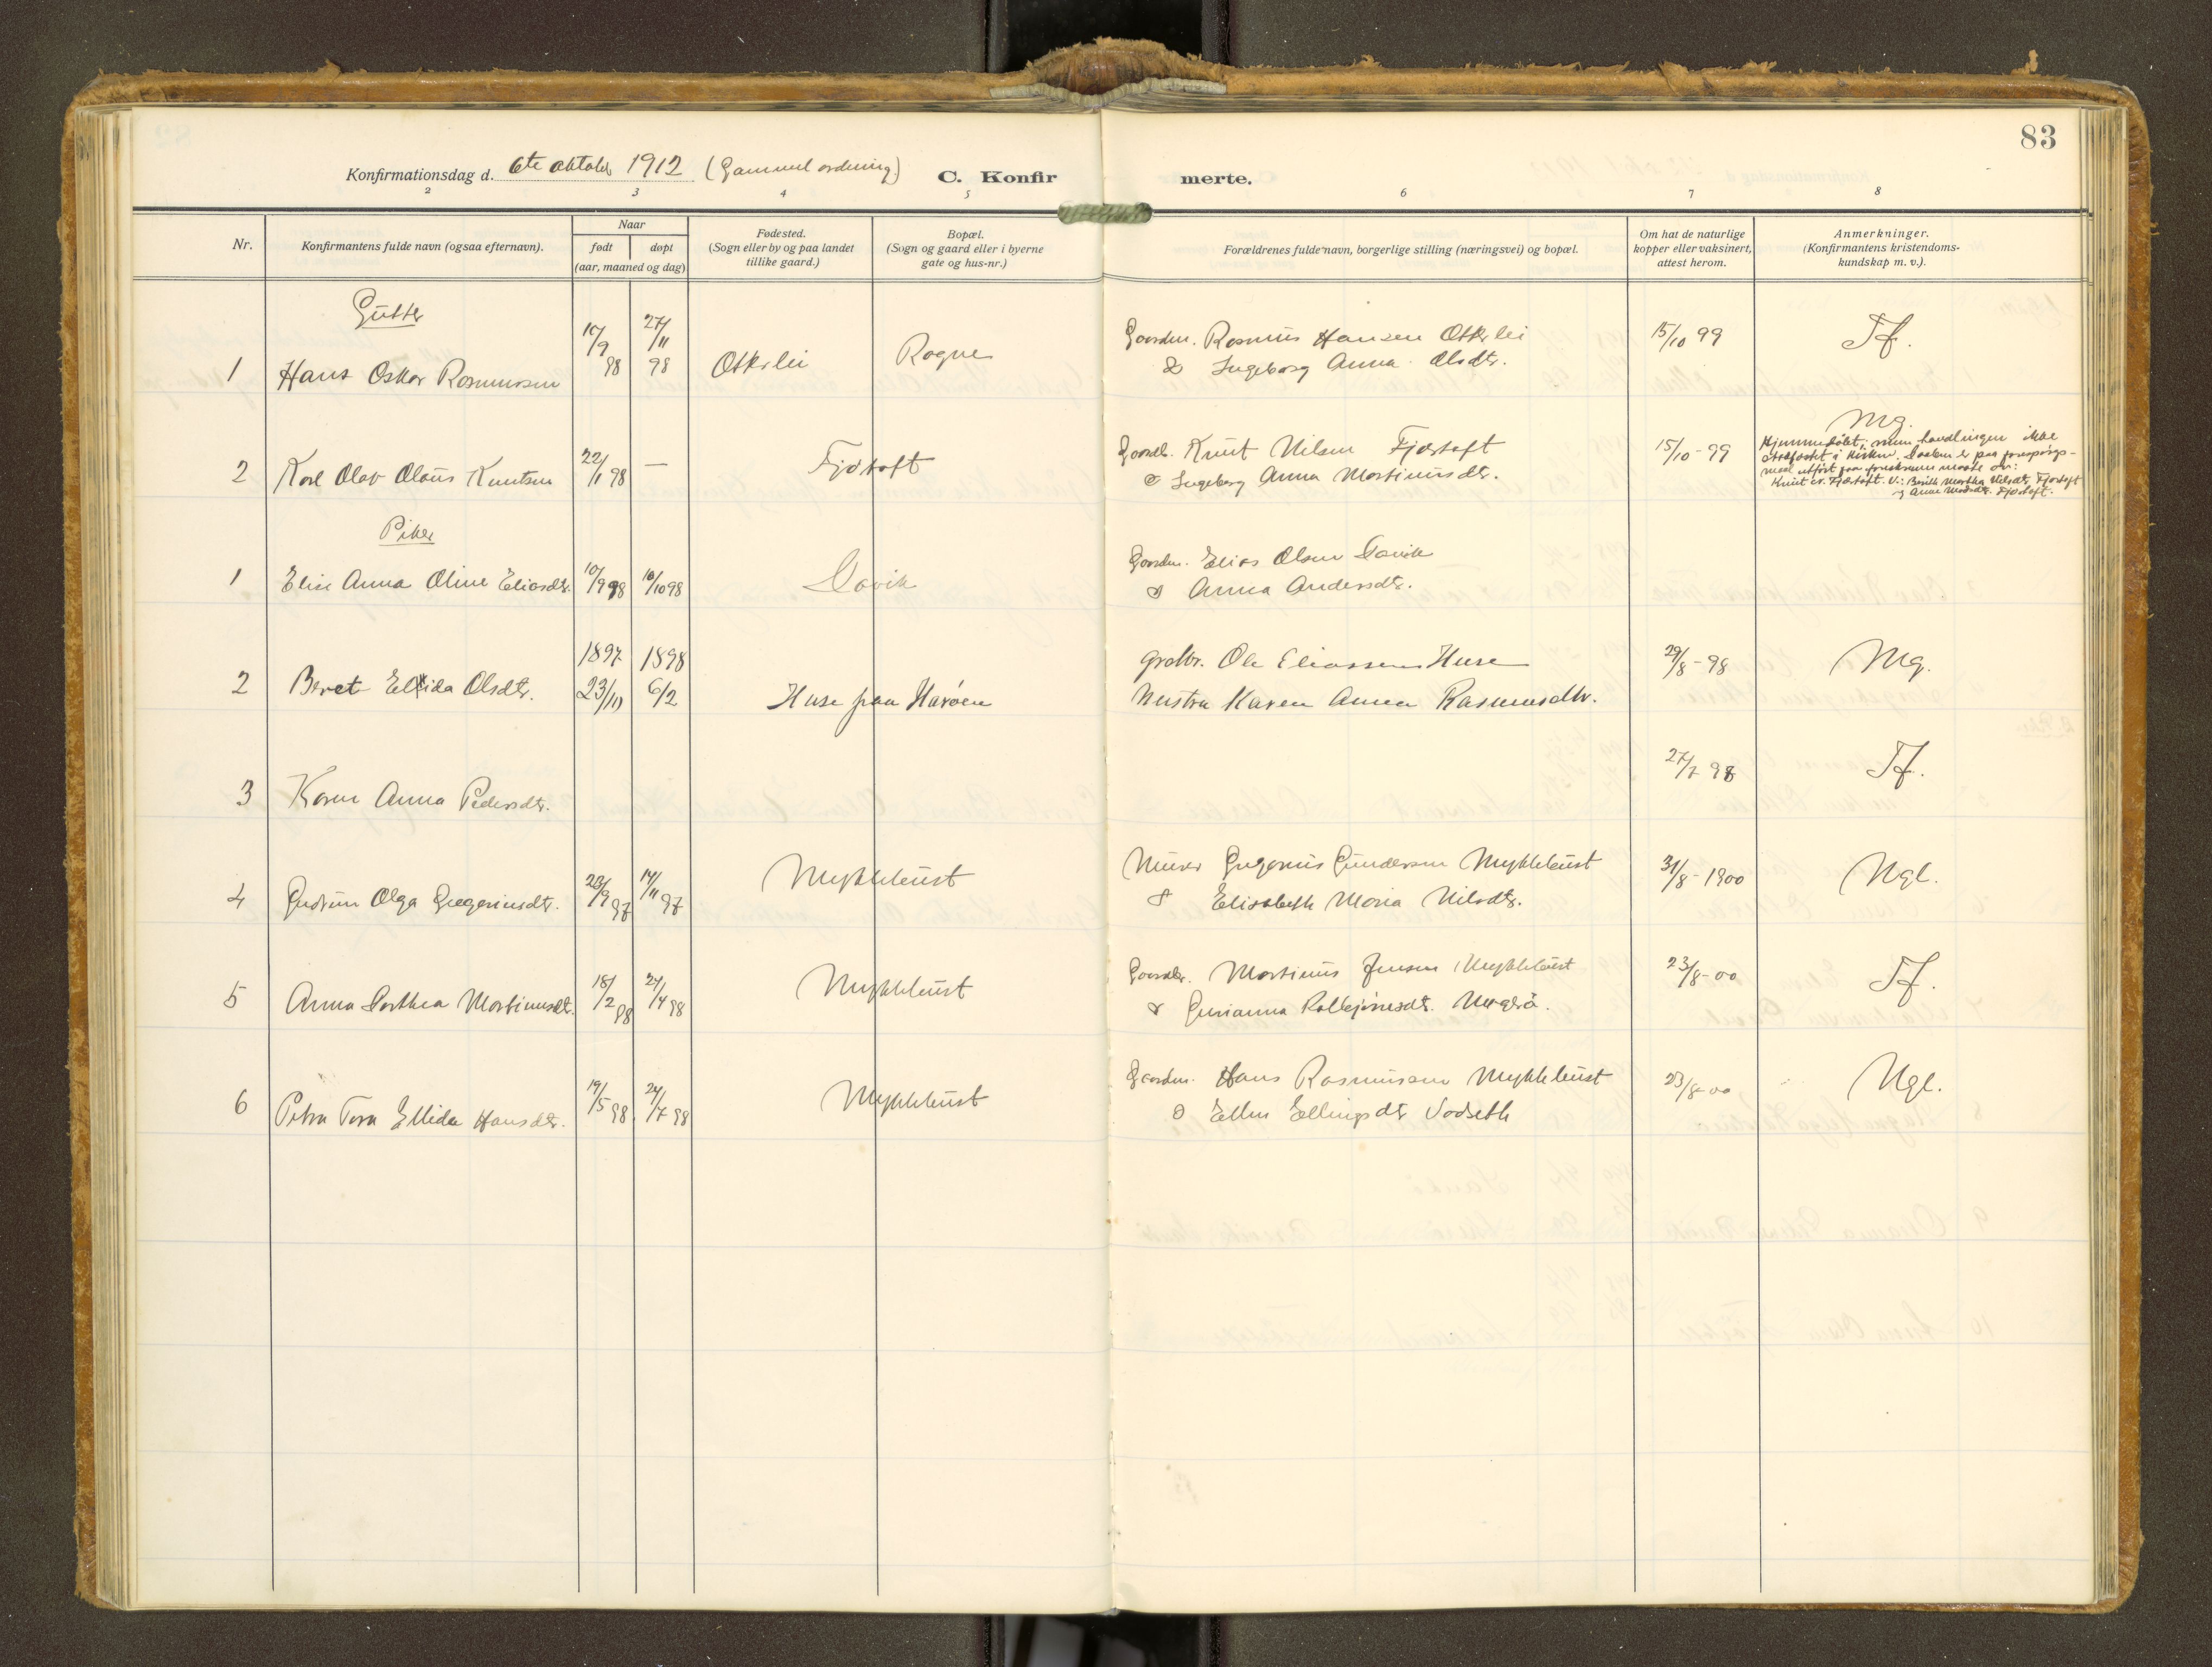 83
Konfirmationsdag d. 6te oktober 1912 (Gammel ordning) C. Konfir merte.
2 3 4 5 6 7 8
Nr.
Konfirmantens fulde navn (ogsaa efternavn).
Naar
født døpt
(aar, maaned og dag)
Fødested.
(Sogn eller by og paa landet
tillike gaard.)
Bopæl.
(Sogn og gaard eller i byerne
gate og hus-nr.)
Forældrenes fulde navn, borgerlige stilling (næringsvei) og bopæl.
Om hat de naturlige
kopper eller vaksinert,
attest herom.
Anmerkninger.
(Konfirmantens kristendoms-
kundskap m. v.).
Gutter
1 Hans Oskar Rasmussen 98 27/11 98 Otterlei Rogne
Gaardm. Rasmus Hansen Otterlei
& Ingeborg Anna Olsdtr.
15/10 99 Tf.
2 Karl Olav Olaus Knutsen 22/1 98 — Fjørtoft
Knut Nilsen Fjørtoft
& Ingeborg Anna Martinusdtr.
15/10-99 Mg.
Hjemmedøbt, men handlingen ikke
stadfæstet i kirken. Daaben er paa forespørgs-
Knut N. Fjørtoft. V.: Berith Martha Nilsdtr. Fjørtoft
og Anne Fjørtoft.
Piker
1 Elise Anna Oline Eliasdtr. 10/9 98 16/10 98 Davik
Gaardm. Elias Olsen Davik
& Anna Andersdtr.
2 Beret Ellida Olsdtr. 1897 23/10 1898 6/2 Huse paa Harøen
Ole Eliassen Huse
Hustru Karen Anna Rasmusdtr.
29/8-98 Mg.
3 Karen Anna Pedersdtr.
27/7 98 Tf.
4 Gudrun Olga Gregoriusdtr. 23/9 97 14/11 97 Myklebust
Murer Gregorius Gundersen Myklebust
& Elisabeth Maria Nilsdtr.
31/8-1900 Ngl.
5 Anna Dorthea Martinusdtr. 18/2 98 24/4 98 Myklebust
Martinus Jensen Myklebust
& Gurianna
23/8-00 Tf.
6 Petra Tora Ellida Hansdtr. 19/5 98 24/7 98 Myklebust
Gaardm. Hans Rasmussen Myklebust
& Ellen Ellingsdtr Vadseth
23/8-00 Ngl.